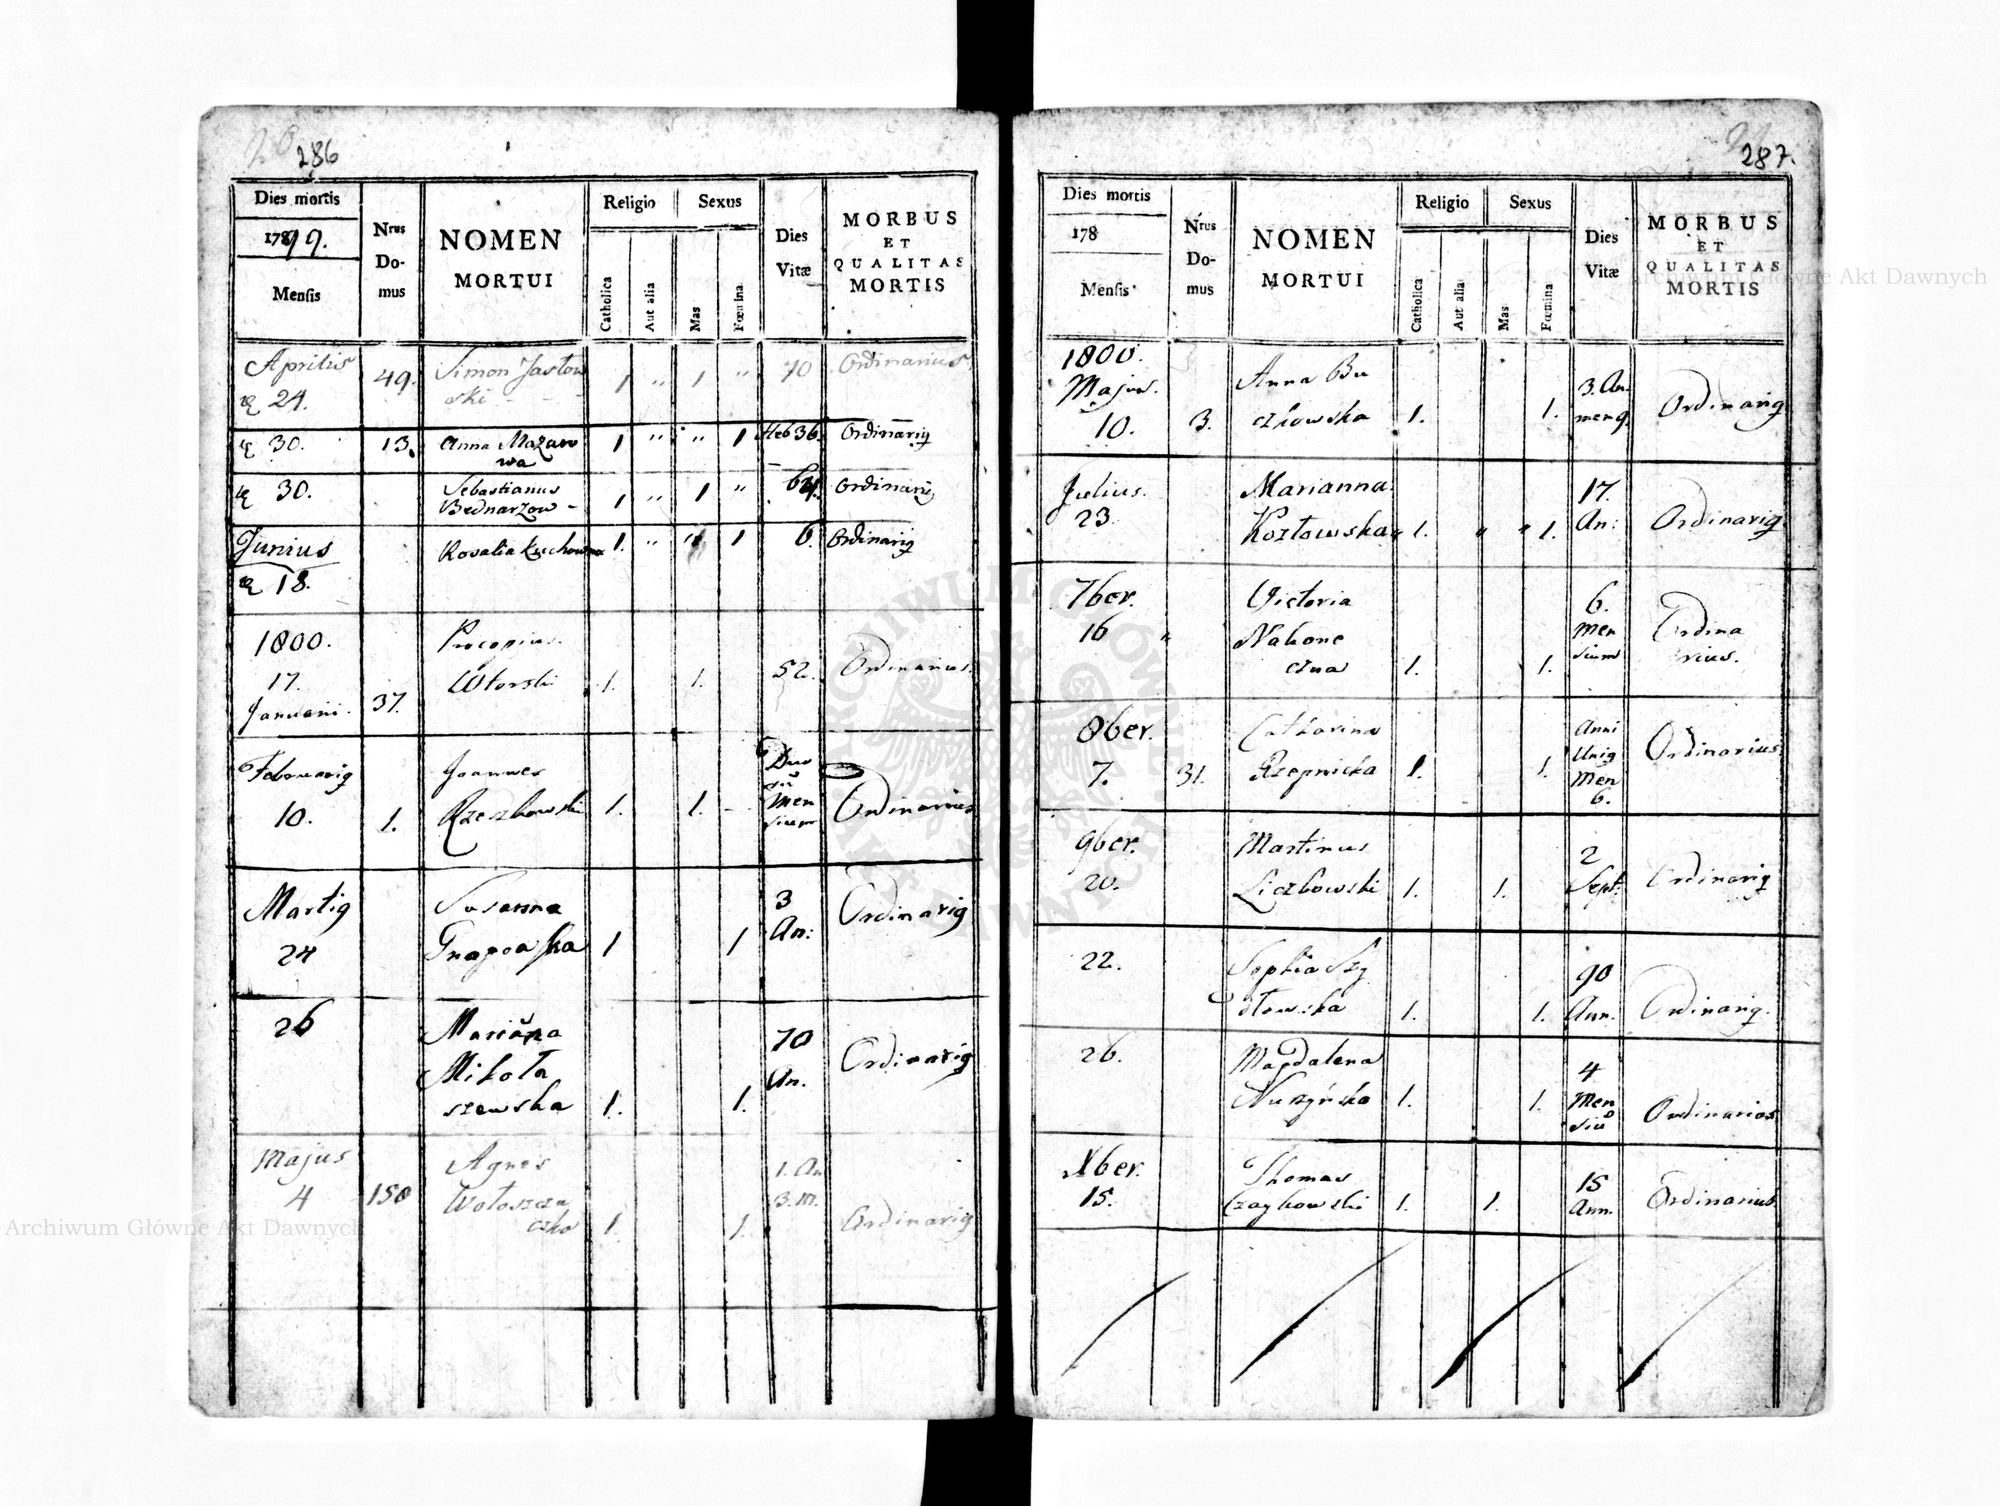 286
Dies mortis
1799.
Mensis
Nrus
Do-
mus
NOMEN
MORTUI
Religio
Catholica
Aut alia
Sexus
Mas
Fœmina
Dies
Vitæ
MORBUS
ET
QUALITAS
MORTIS
Aprilis
24.
49.
Simon Jastow
ski - -
1 " 1 " 70 Ordinarius
30. 13. Anna Mazuro
wa
1 " " 1 36. Ordinariq
30. Sebastianus
Bednarzow -
1 " 1 " 64. Ordinariq
Junius
18.
Rosalia
1. " " 1 6. Ordinariq
1800.
17.
Januarii.
37.
Procopius
Wtorski
1. 1. 52. Ordinarius.
Februariq
10. 1.
Joannes
Rzeszkowski
1. 1. -
Duo
Men
sium
Ordinarius
Martiq
24
Susanna
1 1
3
An:
Ordinariq
26
Mariana
Mikoła
szewska
1. 1.
70
An.
Ordinariq
Majus
4 150
Agnes
Wołoszcza
czka
1. 1.
1. An
3. M.
Ordinariq
287.
Dies mortis
178
Mensis
Nrus
Do-
mus
NOMEN
MORTUI
Religio
Catholica
Aut alia
Sexus
Mas
Fœmina
Dies
Vitæ
MORBUS
ET
QUALITAS
MORTIS
1800.
Majus.
10. 3.
Anna Bu
czkowska
1. 1.
3. An.
men 9.
Ordinariq
Julius.
23
Marianna
Kozłowska
1. " " 1.
17.
An:
Ordinariq
7ber.
16 "
Victoria
Nakone
czna
1. 1.
6.
Men
sium
Ordina
rius.
8ber.
7. 31.
Catharina
Rzepnicka
1. 1.
Anni
Uniq
Men
6.
Ordinarius
9ber.
20.
Martinus
Liczbowski
1. 1.
2
Sept:
Ordinariq
22.
Sophia Szy
dłowska
1. 1.
90
Ann.
Ordinariq.
26.
Magdalena
1. 1.
4
Men
siu
Ordinarius
Xber.
15.
Thomas
Czaykowski
1. 1.
15
Ann.
Ordinarius
Archiwum Główne Akt Dawnych
Archiwum Główne Akt Dawnych
ARCHIWUM GŁÓWNE AKT DAWNYCH